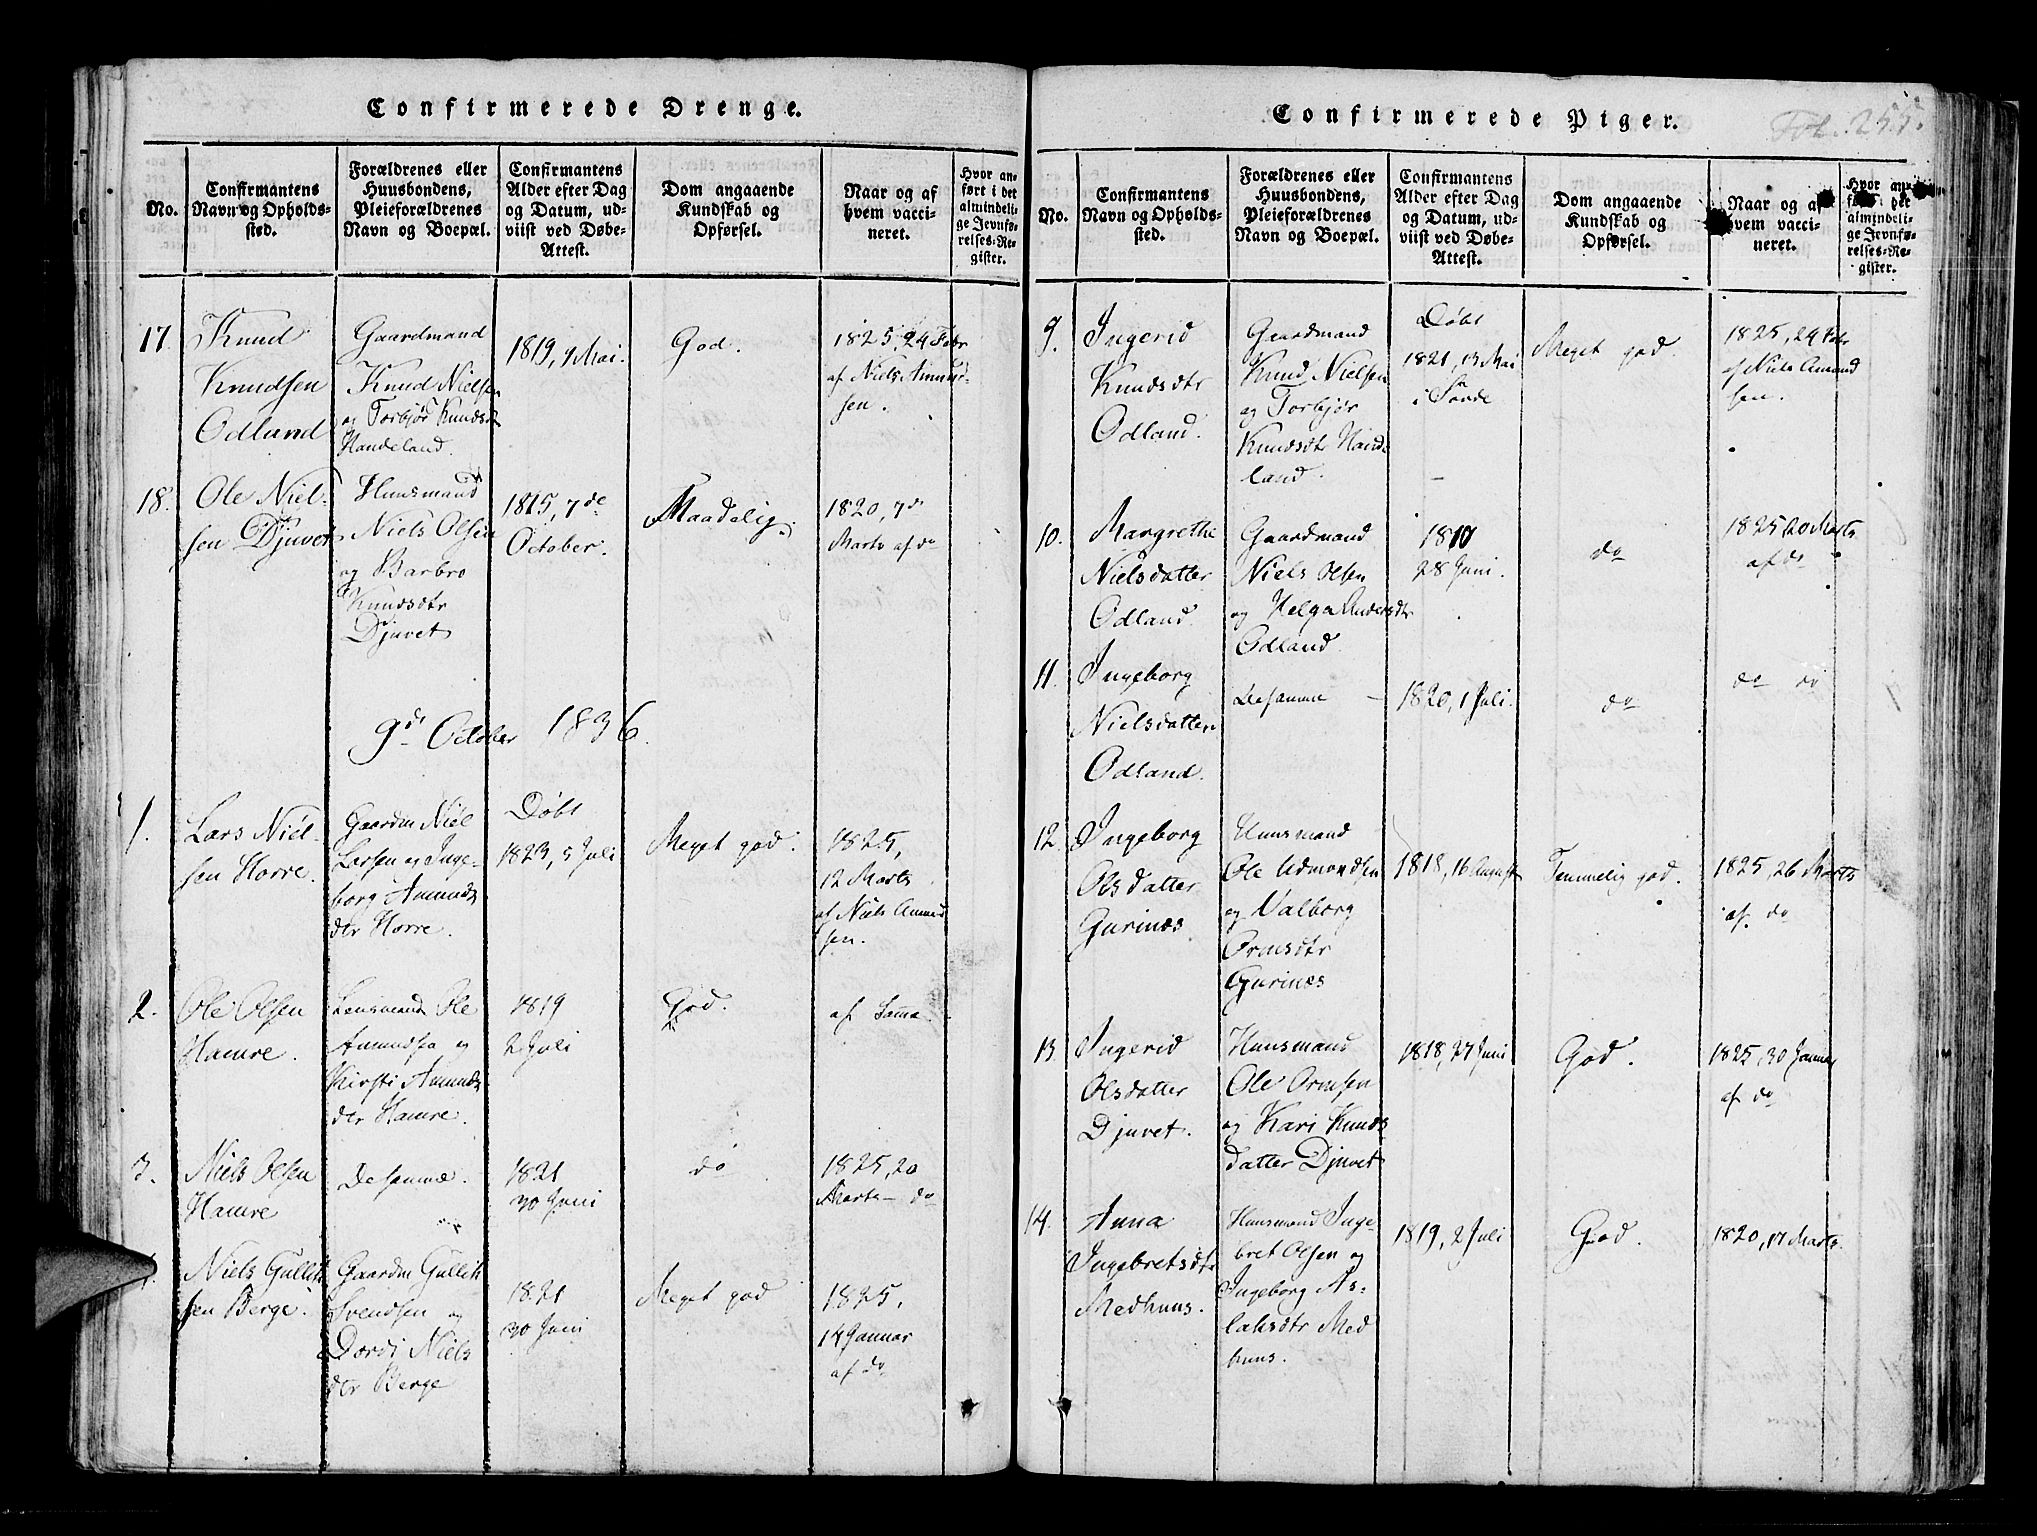 Confirmerede Drenge.
No.
Confirmantens
Navn og Opholds-
sted.
Forældrenes eller
Huusbondens,
Pleieforældrenes
Navn og Boepæl.
Confirmantens
Alder efter Dag
og Datum, ud-
viist ved Døbe-
Attest.
Dom angaaende
Kundskab og
Opførsel.
Naar og af
hvem vacci-
neret.
Hvor an-
ført i det
almindeli-
ge Jevnfø-
relses-Re-
gister.
17.
Knud
Knudsen
Odland
Gaardmand
Knud Nielsen
og Torbjør Knudsd
Handeland.
1819, 9 Mai.
God.
1825, 24 Febr
af Niels Amund-
sen.
18.
Ole Niel-
sen Djuvet
Huusmand
Niels Olsen
og Barbro
Knudsdtr
Djuvet
1815, 7de
October.
Maadelig.
1820, 7d
Marts af do
9d October 1836.
1.
Lars Niel-
sen Horre.
Gaardm Niel
Larsen og Inge-
borg Amunds
dtr Horre.
Døbt
1823, 5 Juli
Meget god.
1825,
12 Marts
af Niels Amund
sen.
2.
Ole Olsen
Hamre.
Lensmand Ole
Amundsen og
Kirsti Amunds
dtr Hamre.
1819
2 Juli
God.
af Samme.
3.
Niels Olsen
Hamre
De samme.
1821
30 Juni
do
1825, 20
Marts – do
4.
Niels Gullik
sen Berge.
Gaardm Gullik
Svendsen og
Dordi Niels
dtr Berge
1821
30 Juni
Meget god
1825,
14 Januar
af do
Confirmerede Piger.
Fol. 255.
No.
Confirmantens
Navn og Opholds-
sted.
Forældrenes eller
Huusbondens,
Pleieforældrenes
Navn og Boepæl.
Confirmantens
Alder efter Dag
og Datum, ud-
viist ved Døbe-
Attest.
Dom angaaende
Kundskab og
Opførsel.
Naar og af
hvem vacci-
neret.
Hvor an-
ført i det
almindeli-
ge Jevnfø-
relses-Re-
gister.
9.
Ingerid
Knudsdtr
Odland.
Gaardmand
Knud Nielsen
og Torbjør
Knudsdtr Hande
land.
Døbt
1821, 13 Mai
i
Meget god.
1825, 24 Febr
af Niels Amund
sen.
10.
Margrethe
Nielsdatter
Odland.
Gaardmand
Niels Olsen
og Helga Andersdtr
Odland.
28 Juni.
do
1825 20 Marts
af do
11.
Ingeborg
Nielsdatter
Odland.
De samme –
1820, 1 Juli.
do
do do
12.
Ingeborg
Olsdatter
Gurines
Huusmand
Ole Admondsen
og Valborg
Ormsdtr
Gurines
1818, 16 August
Temmelig god.
1825, 26 Marts
af do
13.
Ingerid
Olsdatter
Djuvet.
Huusmand
Ole Ormsen
og Kari Knuds
datter Djuvet
1818, 27 Juni
God.
1825, 30 Januar
af do
14.
Anna
Ingebretsdtr
Medhuus.
Huusmand Inge
bret Olsen og
Ingeborg As-
laksdtr Med
huus.
1819, 2 Juli
God.
1820, 17 Marts.